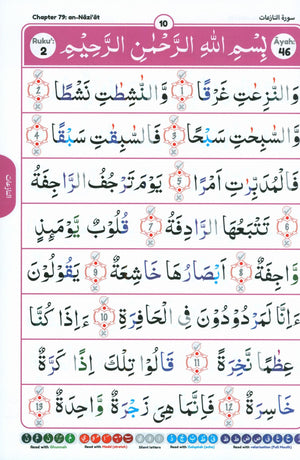 Chapter 79: an-Nāzi'āt 10 سورة النازعات
Ruku': 2 بِسْمِ اللهِ الرَّحْمٰنِ الرَّحِيْمِ Ayah: 46
وَالنّٰزِعٰتِ غَرْقًا ۝١ وَّالنّٰشِطٰتِ نَشْطًا ۝٢
وَّالسّٰبِحٰتِ سَبْحًا ۝٣ فَالسّٰبِقٰتِ سَبْقًا ۝٤
فَالْمُدَبِّرٰتِ اَمْرًا ۝٥ يَوْمَ تَرْجُفُ الرَّاجِفَةُ
۝٦ تَتْبَعُهَا الرَّادِفَةُ ۝٧ قُلُوْبٌ يَّوْمَئِذٍ
وَّاجِفَةٌ ۝٨ اَبْصَارُهَا خَاشِعَةٌ ۝٩ يَقُوْلُوْنَ
ءَاِنَّا لَمَرْدُوْدُوْنَ فِي الْحَافِرَةِ ۝١٠ ءَاِذَا كُنَّا
عِظَامًا نَّخِرَةً ۝١١ قَالُوْا تِلْكَ اِذًا كَرَّةٌ
خَاسِرَةٌ ۝١٢ فَاِنَّمَا هِيَ زَجْرَةٌ وَّاحِدَةٌ ۝١٣
النازعات
Read with Ghunnah Read with Madd (stretch) Silent letters Read with Qalqalah (echo)